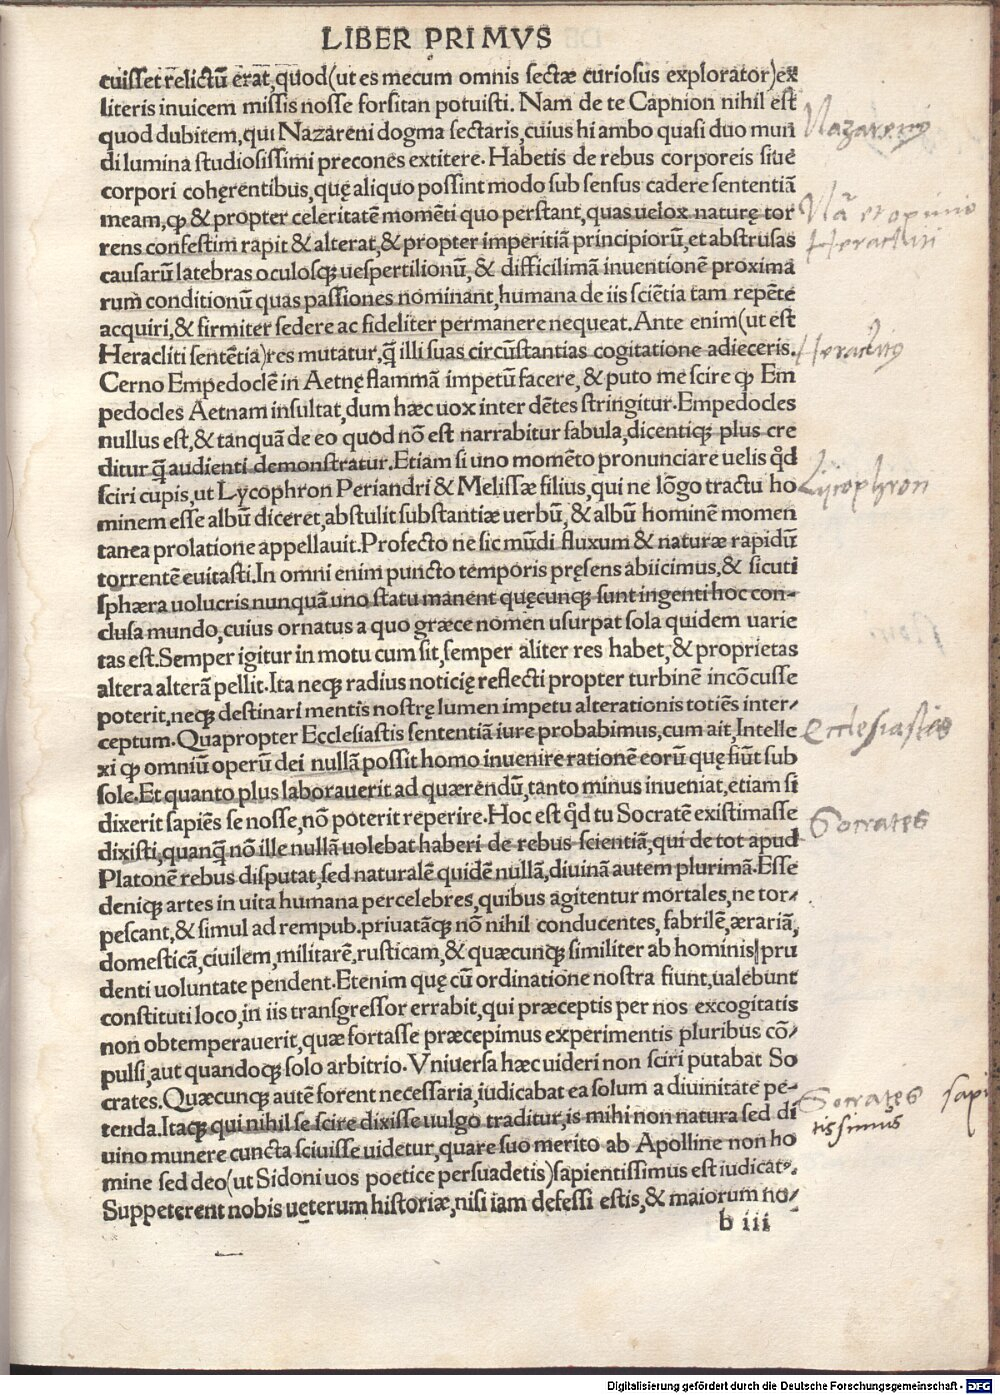 LIBER PRIMVS
cuisset relictũ erat,quod(ut es mecum omnis sectæ curiosus explorator)ex
literis inuicem missis nosse forsitan potuisti. Nam de te Capnion nihil est
quod dubitem,qui Nazareni dogma sectaris,cuius hi ambo quasi duo mun
di lumina studiosissimi precones extitere. Habetis de rebus corporeis siue
corpori cohęrentibus,quę aliquo possint modo sub sensus cadere sententiã
meam,ꝙ & propter celeritatẽ momẽti quo perstant,quas uelox naturę tor
rens confestim rapit & alterat,& propter imperitiã principiorũ,et abstrusas
causarũ latebras oculosqꝫ uespertilionũ, & difficilimã inuentionẽ proxima
rum conditionũ quas passiones nominant,humana de iis sciẽtia tam repẽte
acquiri,& firmiter sedere ac fideliter permanere nequeat. Ante enim(ut est
Heracliti sentẽtia)res mutatur,q̃ illi suas circũstantias cogitatione adieceris.
Cerno Empedoclẽ in Aetnę flammã impetũ facere, & puto me scire ꝙ Em
pedocles Aetnam insultat,dum hæc uox inter dẽtes stringitur. Empedocles
nullus est,& tanquã de eo quod nõ est narrabitur fabula,dicentiqꝫ plus cre
ditur q̃ audienti demonstratur. Etiam si uno momẽto pronunciare uelis qđ
sciri cupis,ut Lycophron Periandri & Melissæ filius,qui ne lõgo tractu ho
minem esse albũ diceret,abstulit substantiæ uerbũ, & albũ hominẽ momen
tanea prolatione appellauit. Profecto ne sic mũdi fluxum & naturæ rapidũ
torrentẽ euitasti. In omni enim puncto temporis pręsens abiicimus,& sicuti
sphæra uolucris nunquã uno statu manent quęcunqꝫ sunt ingenti hoc con-
clusa mundo,cuius ornatus a quo græce nomen usurpat sola quidem uarie
tas est. Semper igitur in motu cum sit,semper aliter res habet,& proprietas
altera alterã pellit. Ita neqꝫ radius noticię reflecti propter turbinẽ incõcusse
poterit,neqꝫ destinari mentis nostrę lumen impetu alterationis totiẽs inter-
ceptum. Quapropter Ecclesiastis sententiã iure probabimus,cum ait,Intelle
xi ꝙ omniũ operũ dei nullã possit homo inuenire rationẽ eorũ quę fiũt sub
sole. Et quanto plus laborauerit ad quærendũ,tanto minus inueniat,etiam si
dixerit sapiẽs se nosse,nõ poterit reperire. Hoc est qđ tu Socratẽ existimasse
dixisti,quanq̃ nõ ille nullã uolebat haberi de rebus scientiã,qui de tot apud
Platonẽ rebus disputat,sed naturalẽ quidẽ nullã,diuinã autem plurimã. Esse
deniqꝫ artes in uita humana percelebres,quibus agitentur mortales,ne tor-
pescant,& simul ad rempub. priuatãqꝫ nõ nihil conducentes, fabrilẽ,ærariã,
domesticã,ciuilem,militarẽ,rusticam,& quæcunqꝫ similiter ab hominis pru
denti uoluntate pendent. Etenim quę cũ ordinatione nostra fiunt,ualebunt
constituti loco,in iis transgressor errabit,qui præceptis per nos excogitatis
non obtemperauerit,quæ fortasse præcepimus experimentis pluribus cõ-
pulsi,aut quandoqꝫ solo arbitrio. Vniuersa hæc uideri non sciri putabat So
crates. Quæcunqꝫ autẽ forent necessaria,iudicabat ea solum a diuinitate pe-
tenda. Itaqꝫ qui nihil se scire dixisse uulgo traditur,is mihi non natura sed di
uino munere cuncta sciuisse uidetur,quare suo merito ab Apolline non ho
mine sed deo(ut Sidoni uos poetice persuadetis)sapientissimus est iudicat9.
Suppeterent nobis ueterum historiæ,nisi iam defessi estis,& maiorum no-
b iii
Nazarenus
Nã et opinio
Heracliti
Heraclitus
Lycophron
Ecclesiastes
Socrates
Socrates sapi
tissimus
Digitalisierung gefördert durch die Deutsche Forschungsgemeinschaft - DFG